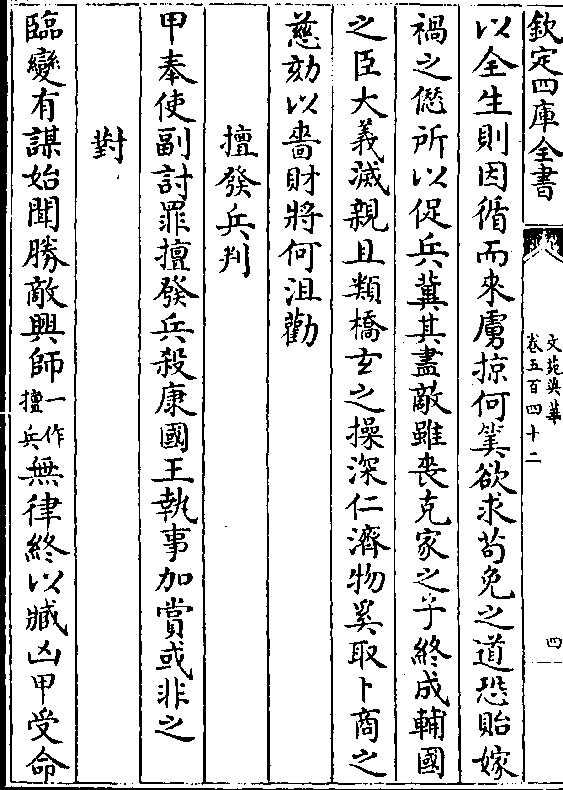 欽定四庫全書
文苑英華
卷五百四十二
四
以全生則因循而來虜掠何冀欲求苟免之道恐貽嫁
禍之愆所以促兵冀其盡敵雖喪克家之子終成輔國
之臣大義滅親且類橋玄之操深仁濟物奚取卜商之
慈劾以嗇財將何沮勸
擅發兵判
甲奉使副討罪擅發兵殺康國王執事加賞或非之
對
臨變有謀始聞勝敵興師一作擅兵無律終以臧凶甲受命